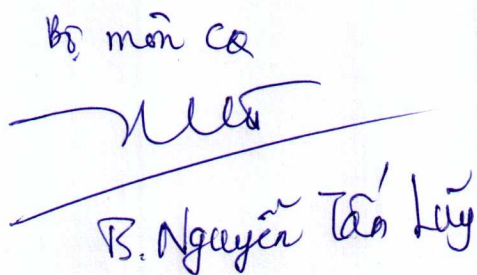 Bộ môn CQ
B. Nguyễn Tấn Lũy